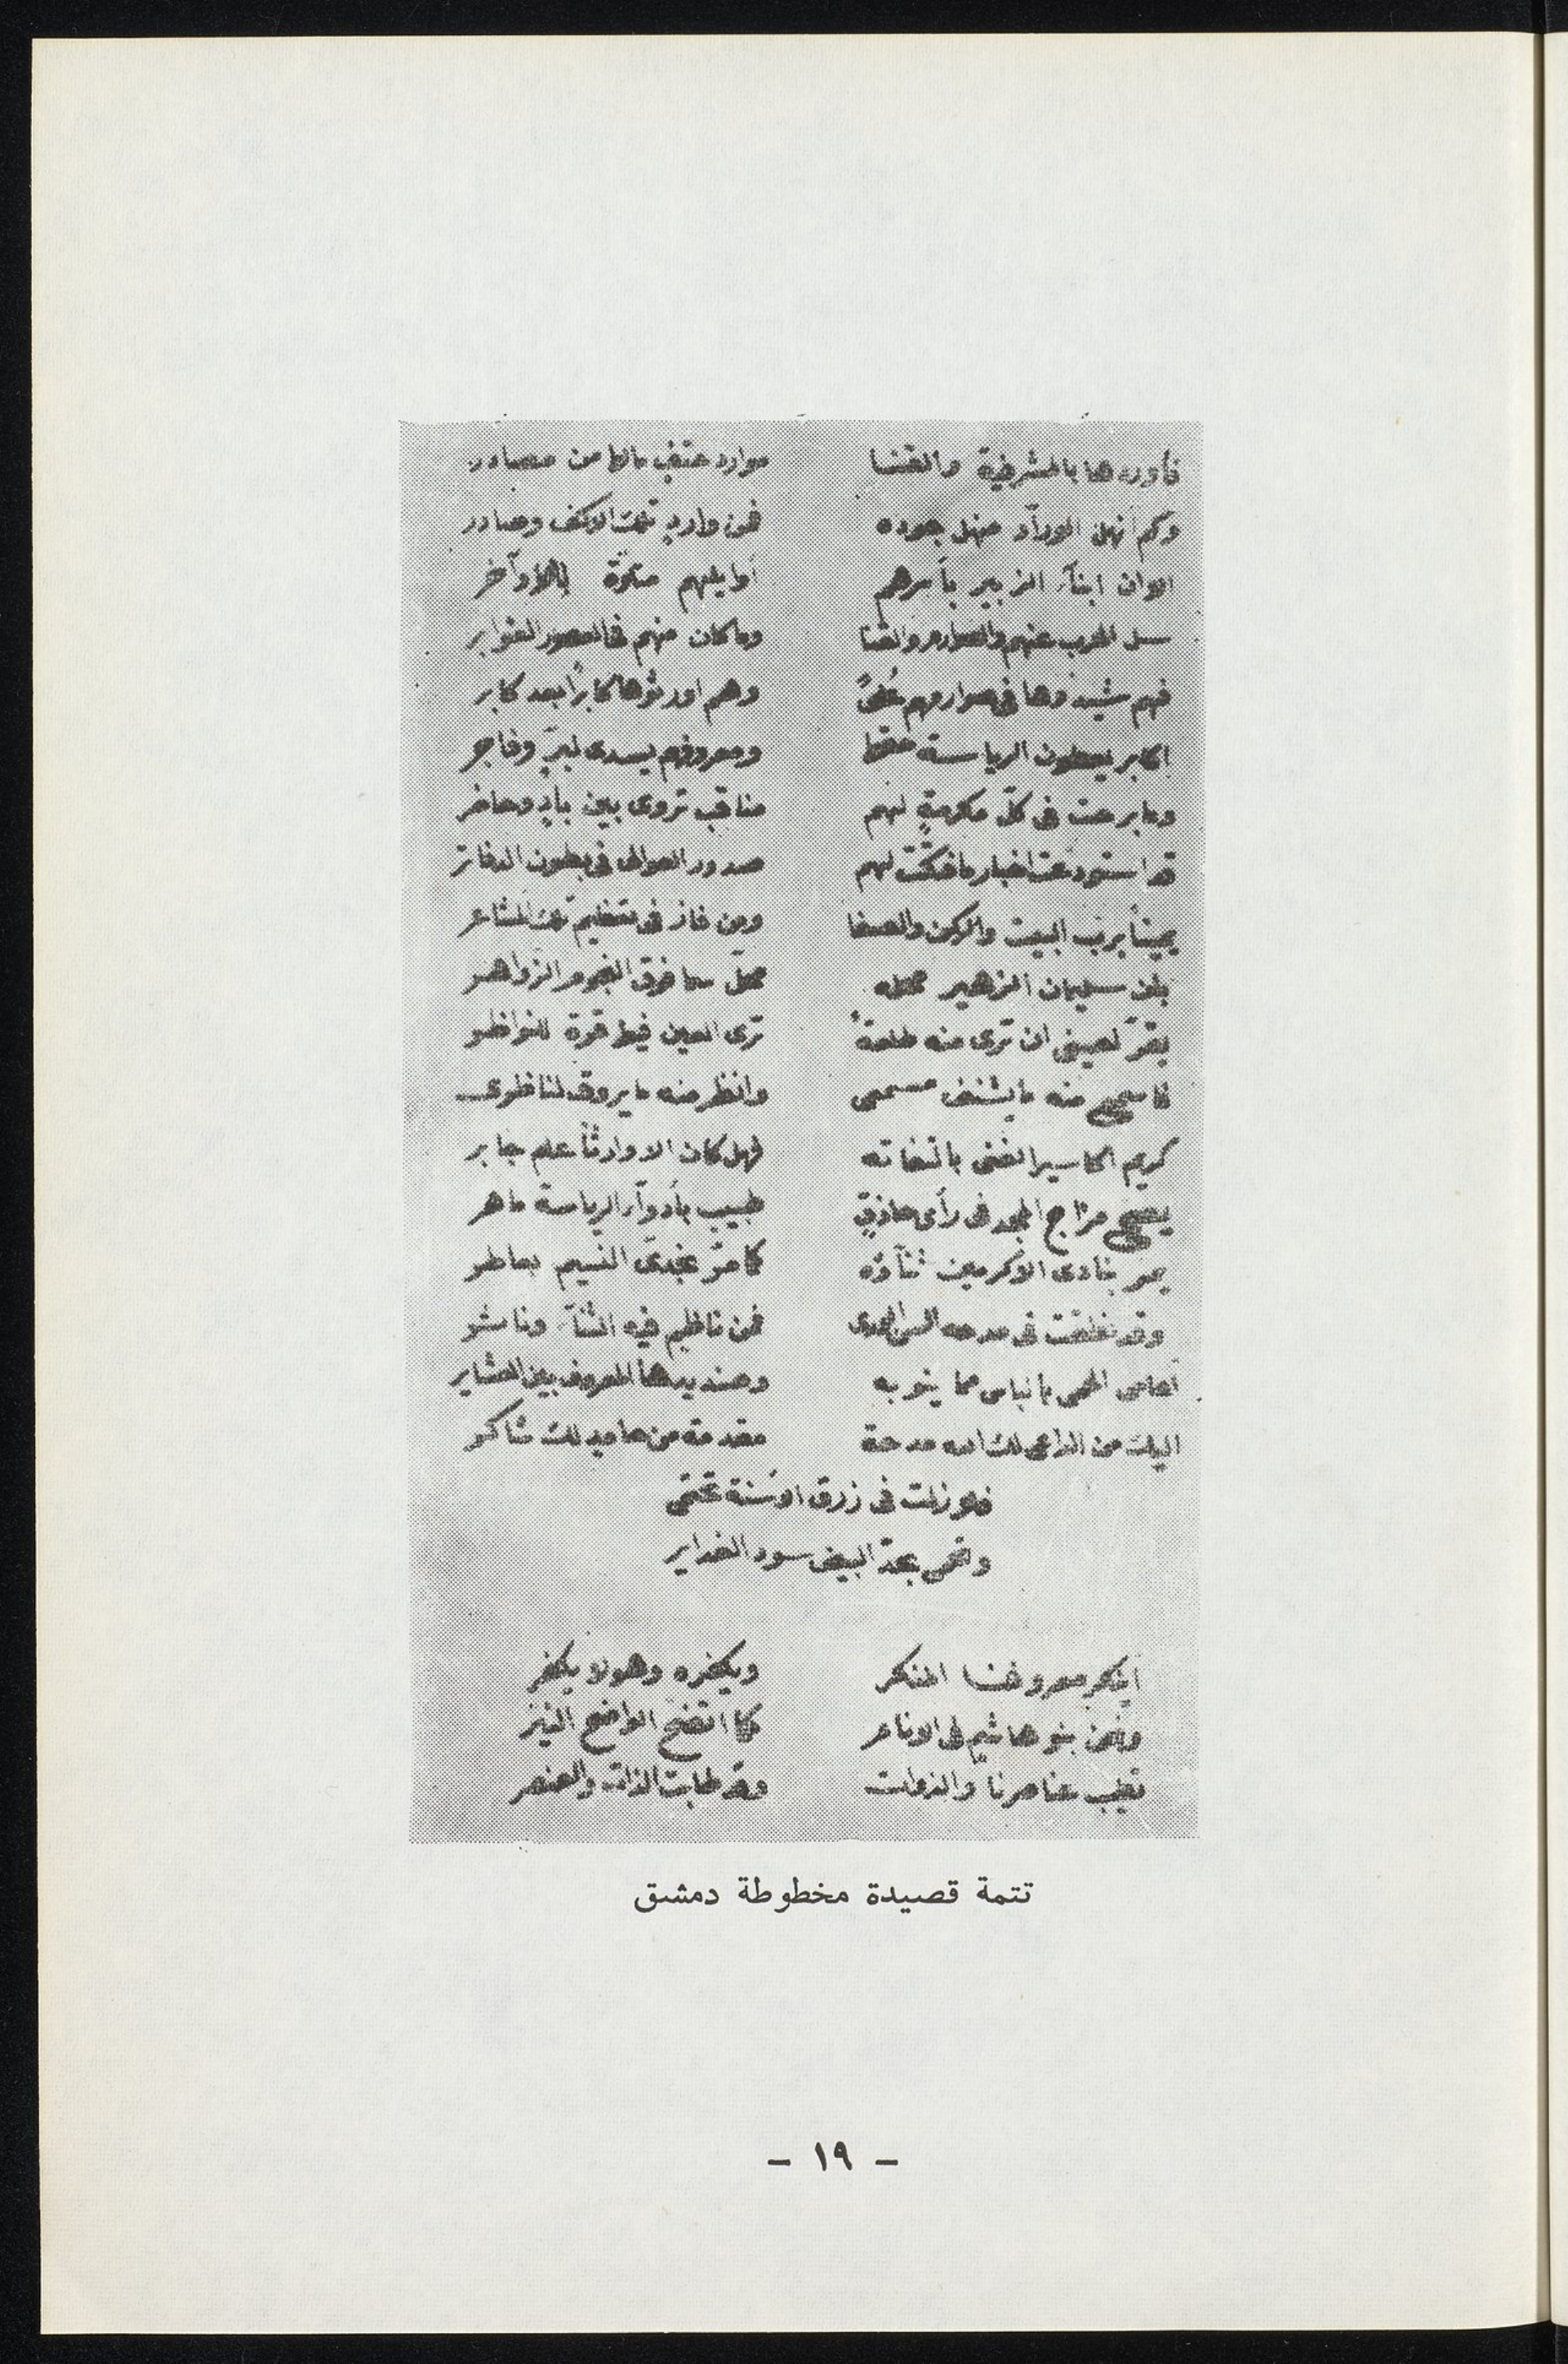 فأوردها بالمشرفية والقنا موارد حتف مالها من مصادر
وكم أنهل الورآد منهل جوده فمن وارد تلك الاكف وصادر
الا ان ابنآء الزبير بأسرهم أوايلهم متلوّة بالأواخر
سل الحرب عنهم والصوارم والقنا وما كان منهم في العصور الغوابر
فهم شيدوها في صوارمهم عُلىً وهم اورثوها كابراً بعد كابر
اكابر يعطون الرياسة حقها ومعروفهم يسدى لبرّ وفاجر
وما برحت في كلّ مكرمةٍ لهم مناقب تروى بين بادٍ وحاضر
قد استودعت اخبار ما لهم صدور العوالى في بطون الدفاتر
يميناً برب البيت والركن والصفا ومن فاز في تعظيم تلك المشاعر
بان سليمان الزهير محله محلّ سما فوق النجوم الزواهر
يقرّ لعينى ان ترى منه طلعةً ترى العين فيها قرة للنواظر
فاسمع منه ما يشنف مسمعى وانظر منه ما يروق لناظرى
كريم اكاسير الغنى بالتفاته فهل كان الا وارثاً علم جابر
يصحح مزاج المجد في رأى حاذقٍ طبيب بأدوآء الرياسة ماهر
يمر بنادى الاكرمين ثنآؤه كما مرّ نجدىّ النسيم بعاطر
وقد نطقت في مدحه السن الورى فمن ناظم فيه الثنآء وناثر
أحامى الحمى بالباس مما ينوبه وصنديدها المعروف بين العشاير
اليك من الداعى لك الله مدحة مقدمة من حامد لك شاكر
فلا زلت في زرق الاسنة تحتمى
وتحمى بحدّ البيض سود الغداير
أينكر معروفنا المنكر ويكفره وهو لا يكفر
ونحن بنو هاشم في الانام كما اتضح الواضح النيّر
تطيب عناصرنا والذوات وقد طابت الذات والعنصر
تتمة قصيدة مخطوطة دمشق
- ١٩ -